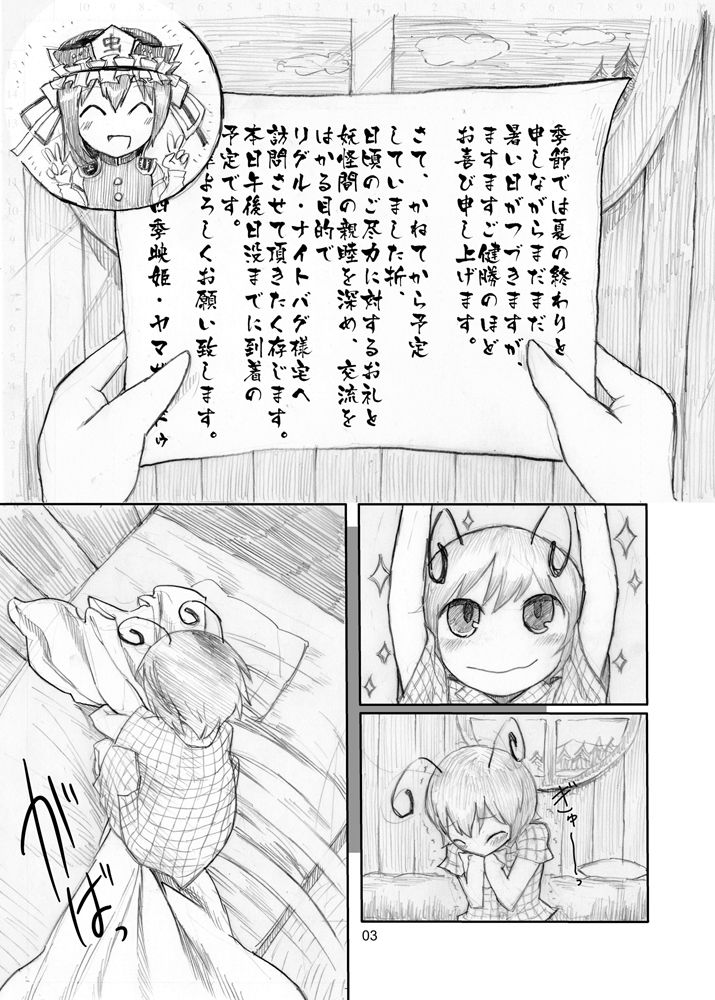 季節では夏の終わりと
申しながらまだまだ
暑い日がつづきますが、
ますますご健勝のほど
お喜び申し上げます。
さて、かねてから予定
していました折、
日頃のご尽力に対するお礼と
妖怪間の親睦を深め、交流を
はかる目的で
リグル・ナイトバグ様宅へ
訪問させて頂きたく存じます。
本日午後日没までに到着の
予定です。
よろしくお願い致します。
四季映姫・ヤマ
ぎゅーっ
がばっ
03